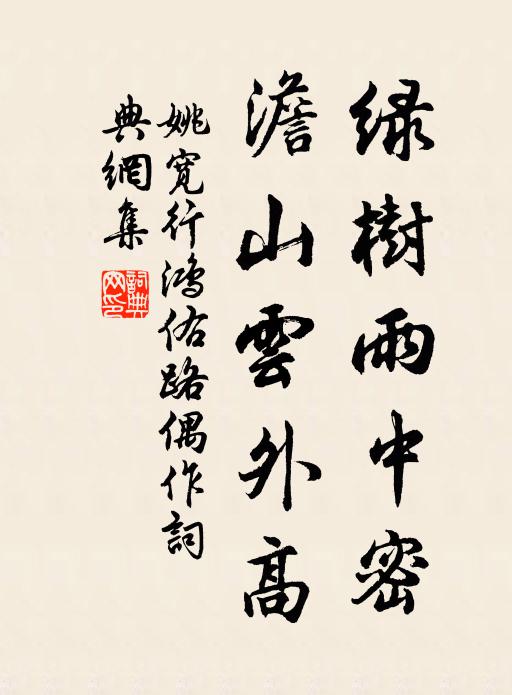 绿樹雨中密
澹山雲外高
姚寬行鴻佑路偶作詞
典網集
詞典網印